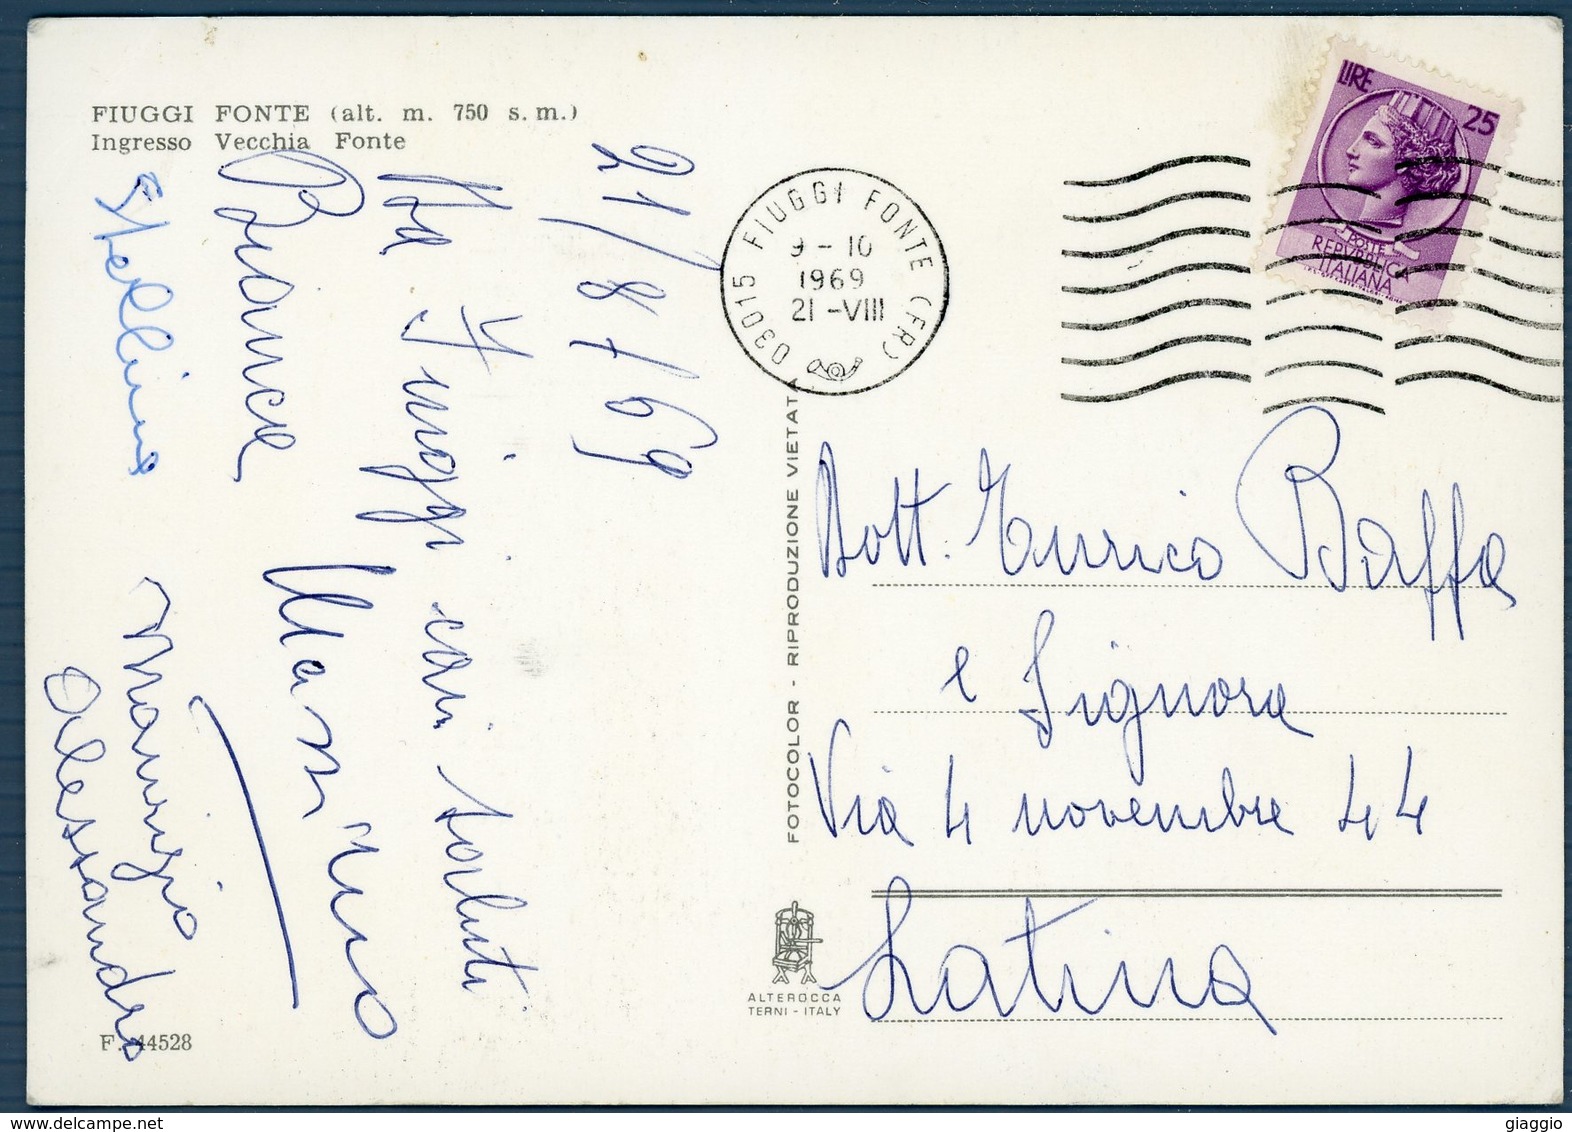 FIUGGI FONTE (alt. m. 750 s. m.)
Ingresso Vecchia Fonte
21/8/69
Da Fiuggi cari saluti
Bianca Massimo
Stellina Maurizio
Alessandro
F. 44528
03015 FIUGGI FONTE (FR)
9 - 10
1969
21 - VIII
LIRE 25
POSTE
REPVBBLICA
ITALIANA
FOTOCOLOR - RIPRODUZIONE VIETATA
ALTEROCCA
TERNI - ITALY
Dott. Enrico Baffa
e Signora
Via 4 novembre 44
Latina
giaggio